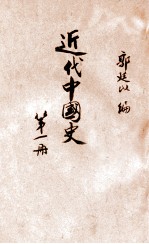 郭廷以編
近代中國史
第一冊